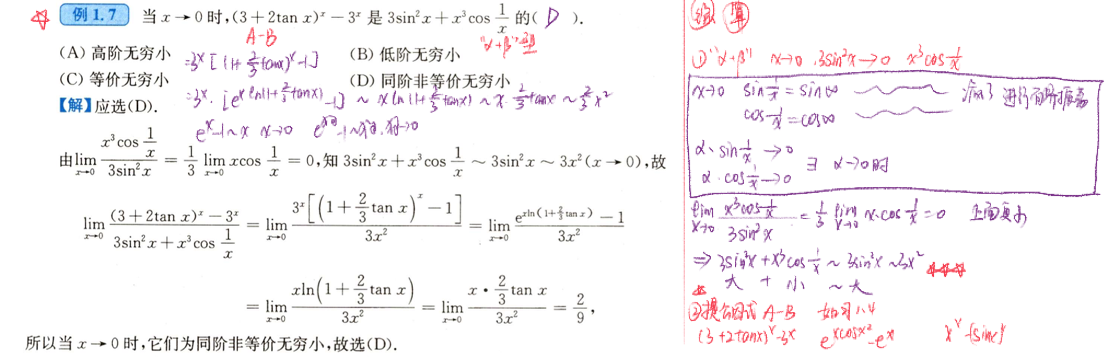 例 1.7 当 x → 0 时,(3 + 2tan x)^x − 3^x 是 3sin²x + x³cos 1/x 的( D ).
A-B
"α+β"型
(A) 高阶无穷小 (B) 低阶无穷小
=3^x[(1+2/3 tanx)^x-1]
(C) 等价无穷小 (D) 同阶非等价无穷小
【解】应选(D).
=3^x·[e^{xln(1+2/3 tanx)}-1] ~ xln(1+2/3 tanx) ~ x·2/3 tanx ~ 2/3 x²
e^x-1~x x→0
由 lim_{x→0} (x³cos 1/x)/(3sin²x) = 1/3 lim_{x→0} xcos 1/x = 0,知 3sin²x + x³cos 1/x ~ 3sin²x ~ 3x²(x → 0),故
lim_{x→0} ((3 + 2tan x)^x − 3^x)/(3sin²x + x³cos 1/x) = lim_{x→0} (3^x[(1 + 2/3 tan x)^x − 1])/(3x²) = lim_{x→0} (e^{xln(1+2/3 tan x)} − 1)/(3x²)
= lim_{x→0} (xln(1 + 2/3 tan x))/(3x²) = lim_{x→0} (x · 2/3 tan x)/(3x²) = 2/9,
所以当 x → 0 时,它们为同阶非等价无穷小,故选(D).
算
① "α+β" x→0 3sin²x→0 x³cos 1/x
x→0 sin 1/x = sin∞
cos 1/x = cos∞
α·sin 1/x →0
α·cos 1/x →0 α→0时
lim_{x→0} (x³cos 1/x)/(3sin²x) = 1/3 lim_{x→0} x·cos 1/x = 0
⇒ 3sin²x + x³cos 1/x ~ 3sin²x ~ 3x²
大 + 小 ~ 大
②提公因式 A-B
(3+2tanx)^x-3^x e^{xcosx²}-e^x